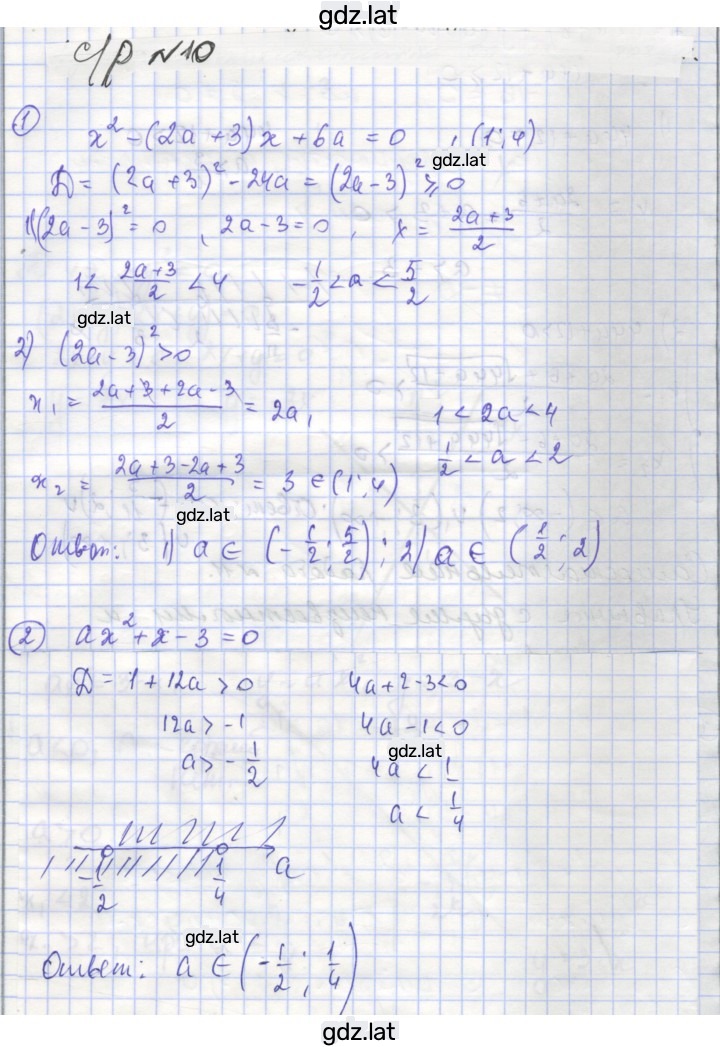 gdz.lat
с/р №10
① x² - (2a + 3)x + 6a = 0 , (1; 4)
gdz.lat
D = (2a + 3)² - 24a = (2a - 3)² ⩾ 0
1) (2a - 3)² = 0 , 2a - 3 = 0 , x = (2a + 3)/2
1 < (2a + 3)/2 < 4 -1/2 < a < 5/2
gdz.lat
2) (2a - 3)² > 0
x₁ = (2a + 3 + 2a - 3)/2 = 2a, 1 < 2a < 4
1/2 < a < 2
x₂ = (2a + 3 - 2a + 3)/2 = 3 ∈ (1; 4)
gdz.lat
Ответ: 1) a ∈ (-1/2; 5/2); 2) a ∈ (1/2; 2)
② ax² + x - 3 = 0
D = 1 + 12a > 0 4a + 2 - 3 < 0
12a > -1 4a - 1 < 0
gdz.lat
a > -1/2 4a < 1
a < 1/4
-1/2 1/4 a
gdz.lat
Ответ: a ∈ (-1/2; 1/4)
gdz.lat